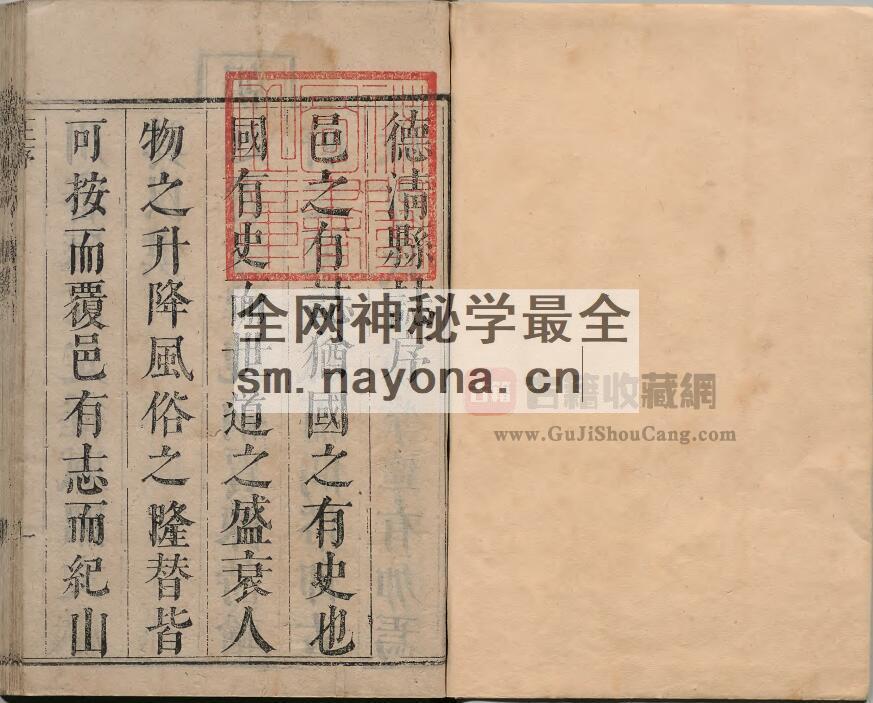 德清縣志序
邑之有志猶國之有史也
國有史而世道之盛衰人
物之升降風俗之隆替皆
可按而覆邑有志而紀山
一
全网神秘学最全
sm.nayona.cn
古籍收藏網
www.GuJiShouCang.com